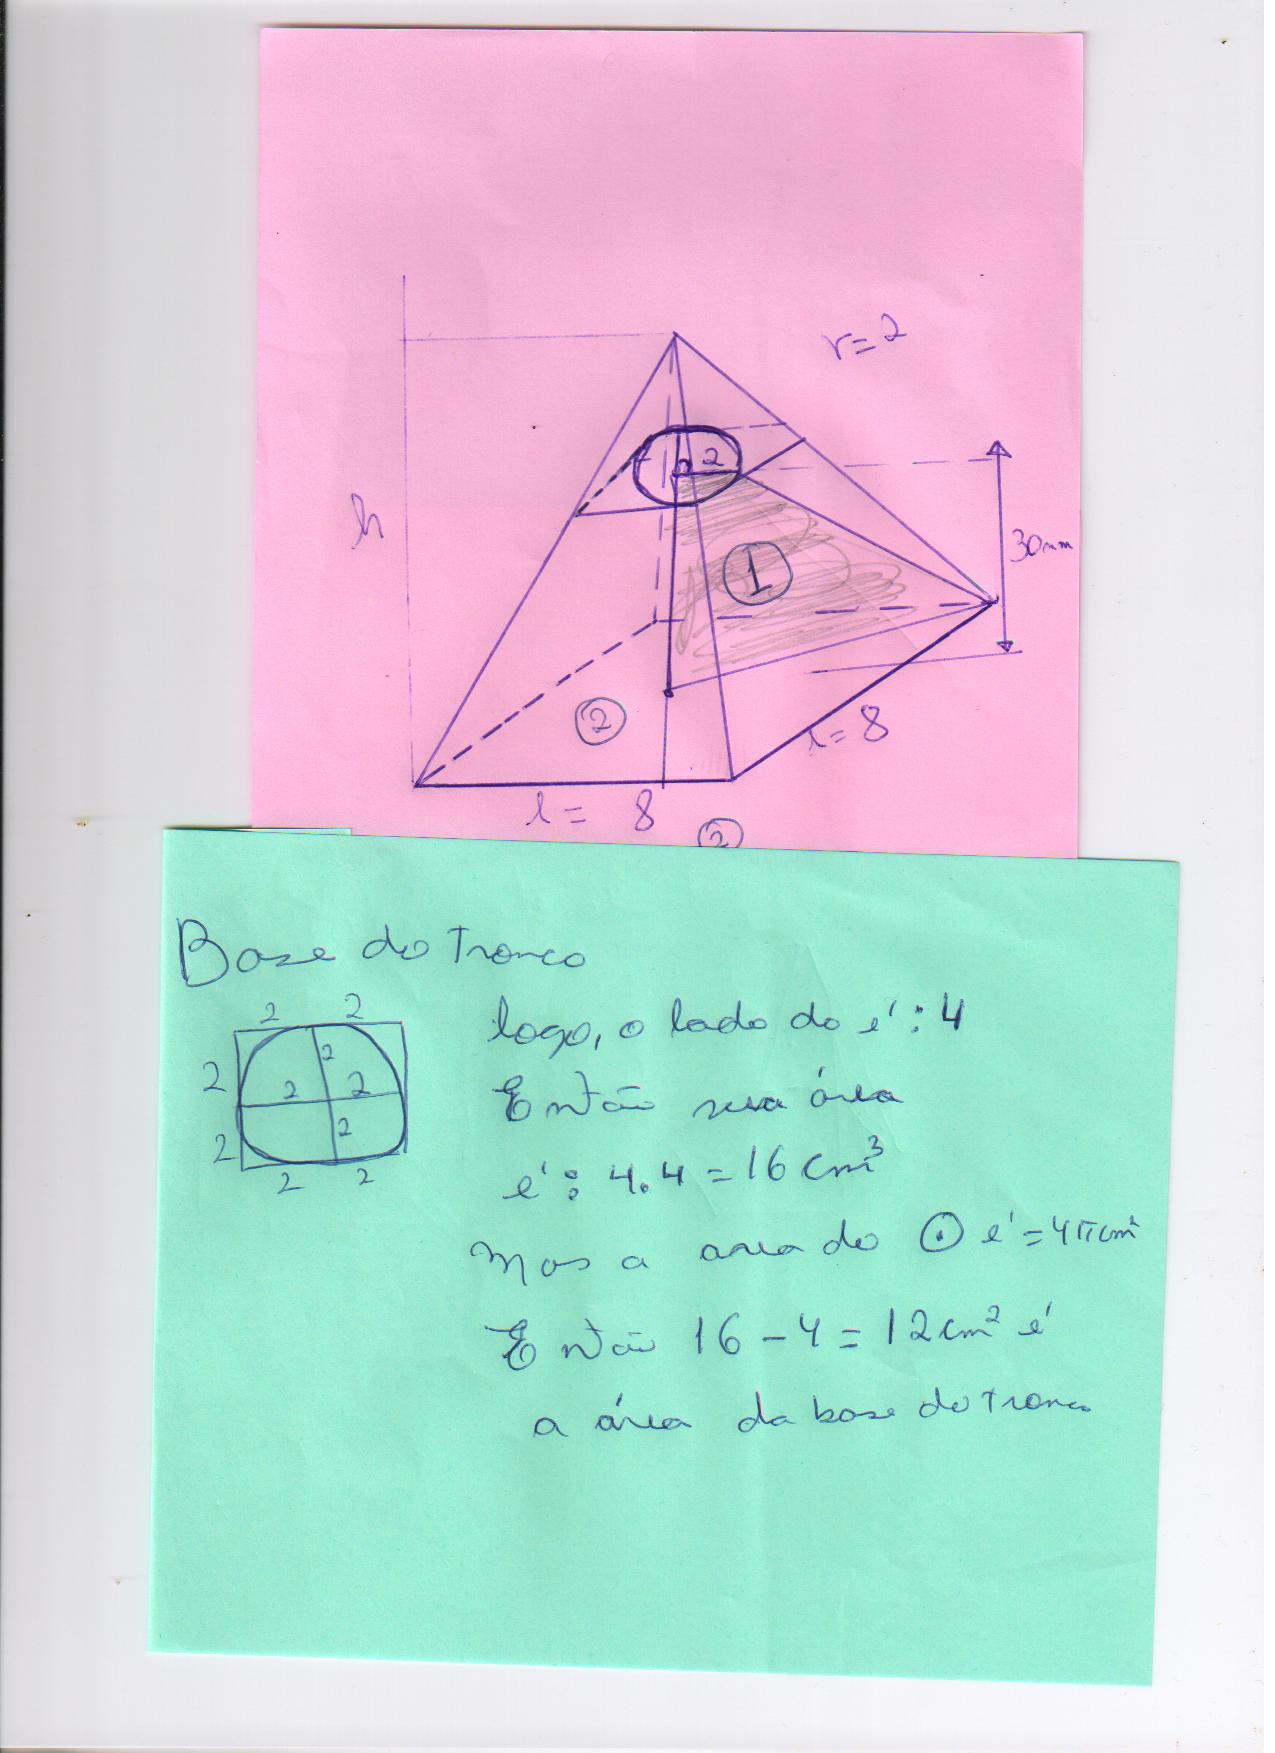 r=2
h
2
1
30mm
2
l=8
l= 8
2
Base do Tronco
2 2
logo, o lado do é: 4
2
2 2 2
Então sua área
2 2
2 2
é: 4.4=16cm³
Mas a area do ⊙ é=4πcm²
Então 16-4=12cm² é
a área da base do tronco